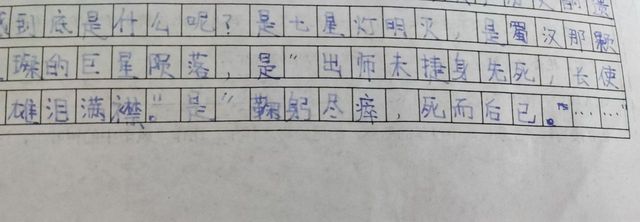 到底是什么呢？是七星灯明灭，是蜀汉那颗
璨的巨星陨落，是"出师未捷身先死，长使
雄泪满襟。"是"鞠躬尽瘁，死而后已。"……